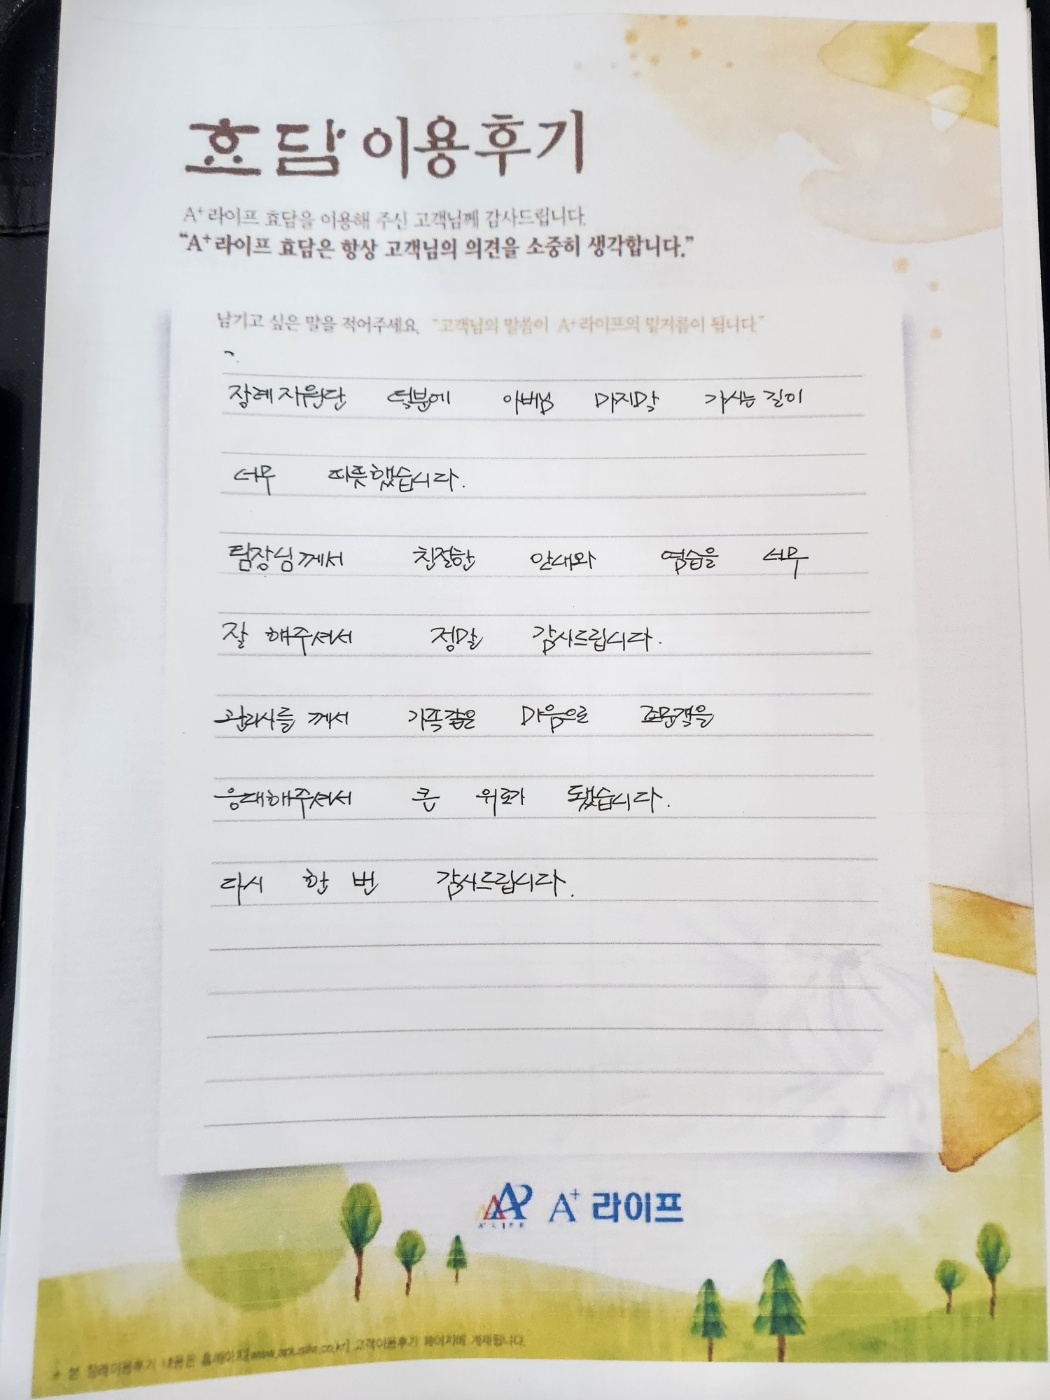 효담 이용후기
A+라이프 효담을 이용해 주신 고객님께 감사드립니다.
"A+라이프 효담은 항상 고객님의 의견을 소중히 생각합니다."
남기고 싶은 말을 적어주세요. "고객님의 말씀이 A+라이프의 밑거름이 됩니다"
장례지원단 덕분에 아버님 마지막 가시는 길이
너무 따뜻했습니다.
팀장님께서 친절한 안내와 염습을 너무
잘 해주셔서 정말 감사드립니다.
관리사들 께서 가족같은 마음으로 조문객을
응대해주셔서 큰 위로가 됐습니다.
다시 한 번 감사드립니다.
A+ LIFE A+ 라이프
* 본 장례이용후기 내용은 홈페이지[www.apluslife.co.kr] 고객이용후기 페이지에 게재됩니다.